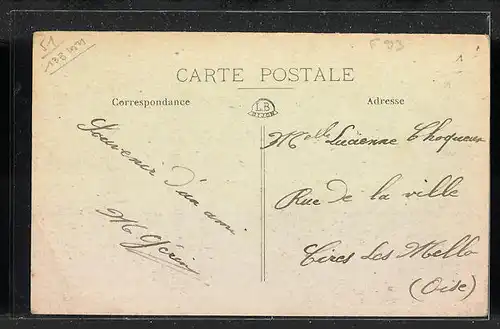 51
F 93
CARTE POSTALE
Correspondance
LB
DIJON
Adresse
Souvenir d'un ami
M Gérin
Melle Lucienne Choqueux
Rue de la ville
Cires Les Mello
(Oise)